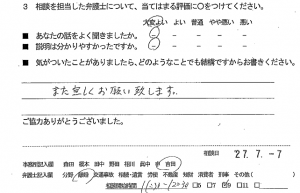 3 相談を担当した弁護士について、当てはまる評価に○をつけてください。
大変よい よい 普通 やや悪い 悪い
■ あなたの話をよく聞きましたか。
■ 説明は分かりやすかったですか。
■ 気がついたことがありましたら、どのようなことでも結構ですからお書きください。
また宜しくお願い致します。
ご協力ありがとうございました。
相談日 '27. 7. -7
事務局記入欄
弁護士記入欄 分野 離婚 交通事故 相続・遺言 労働 不動産 知財 消費者 刑事 その他(
相談開始時間